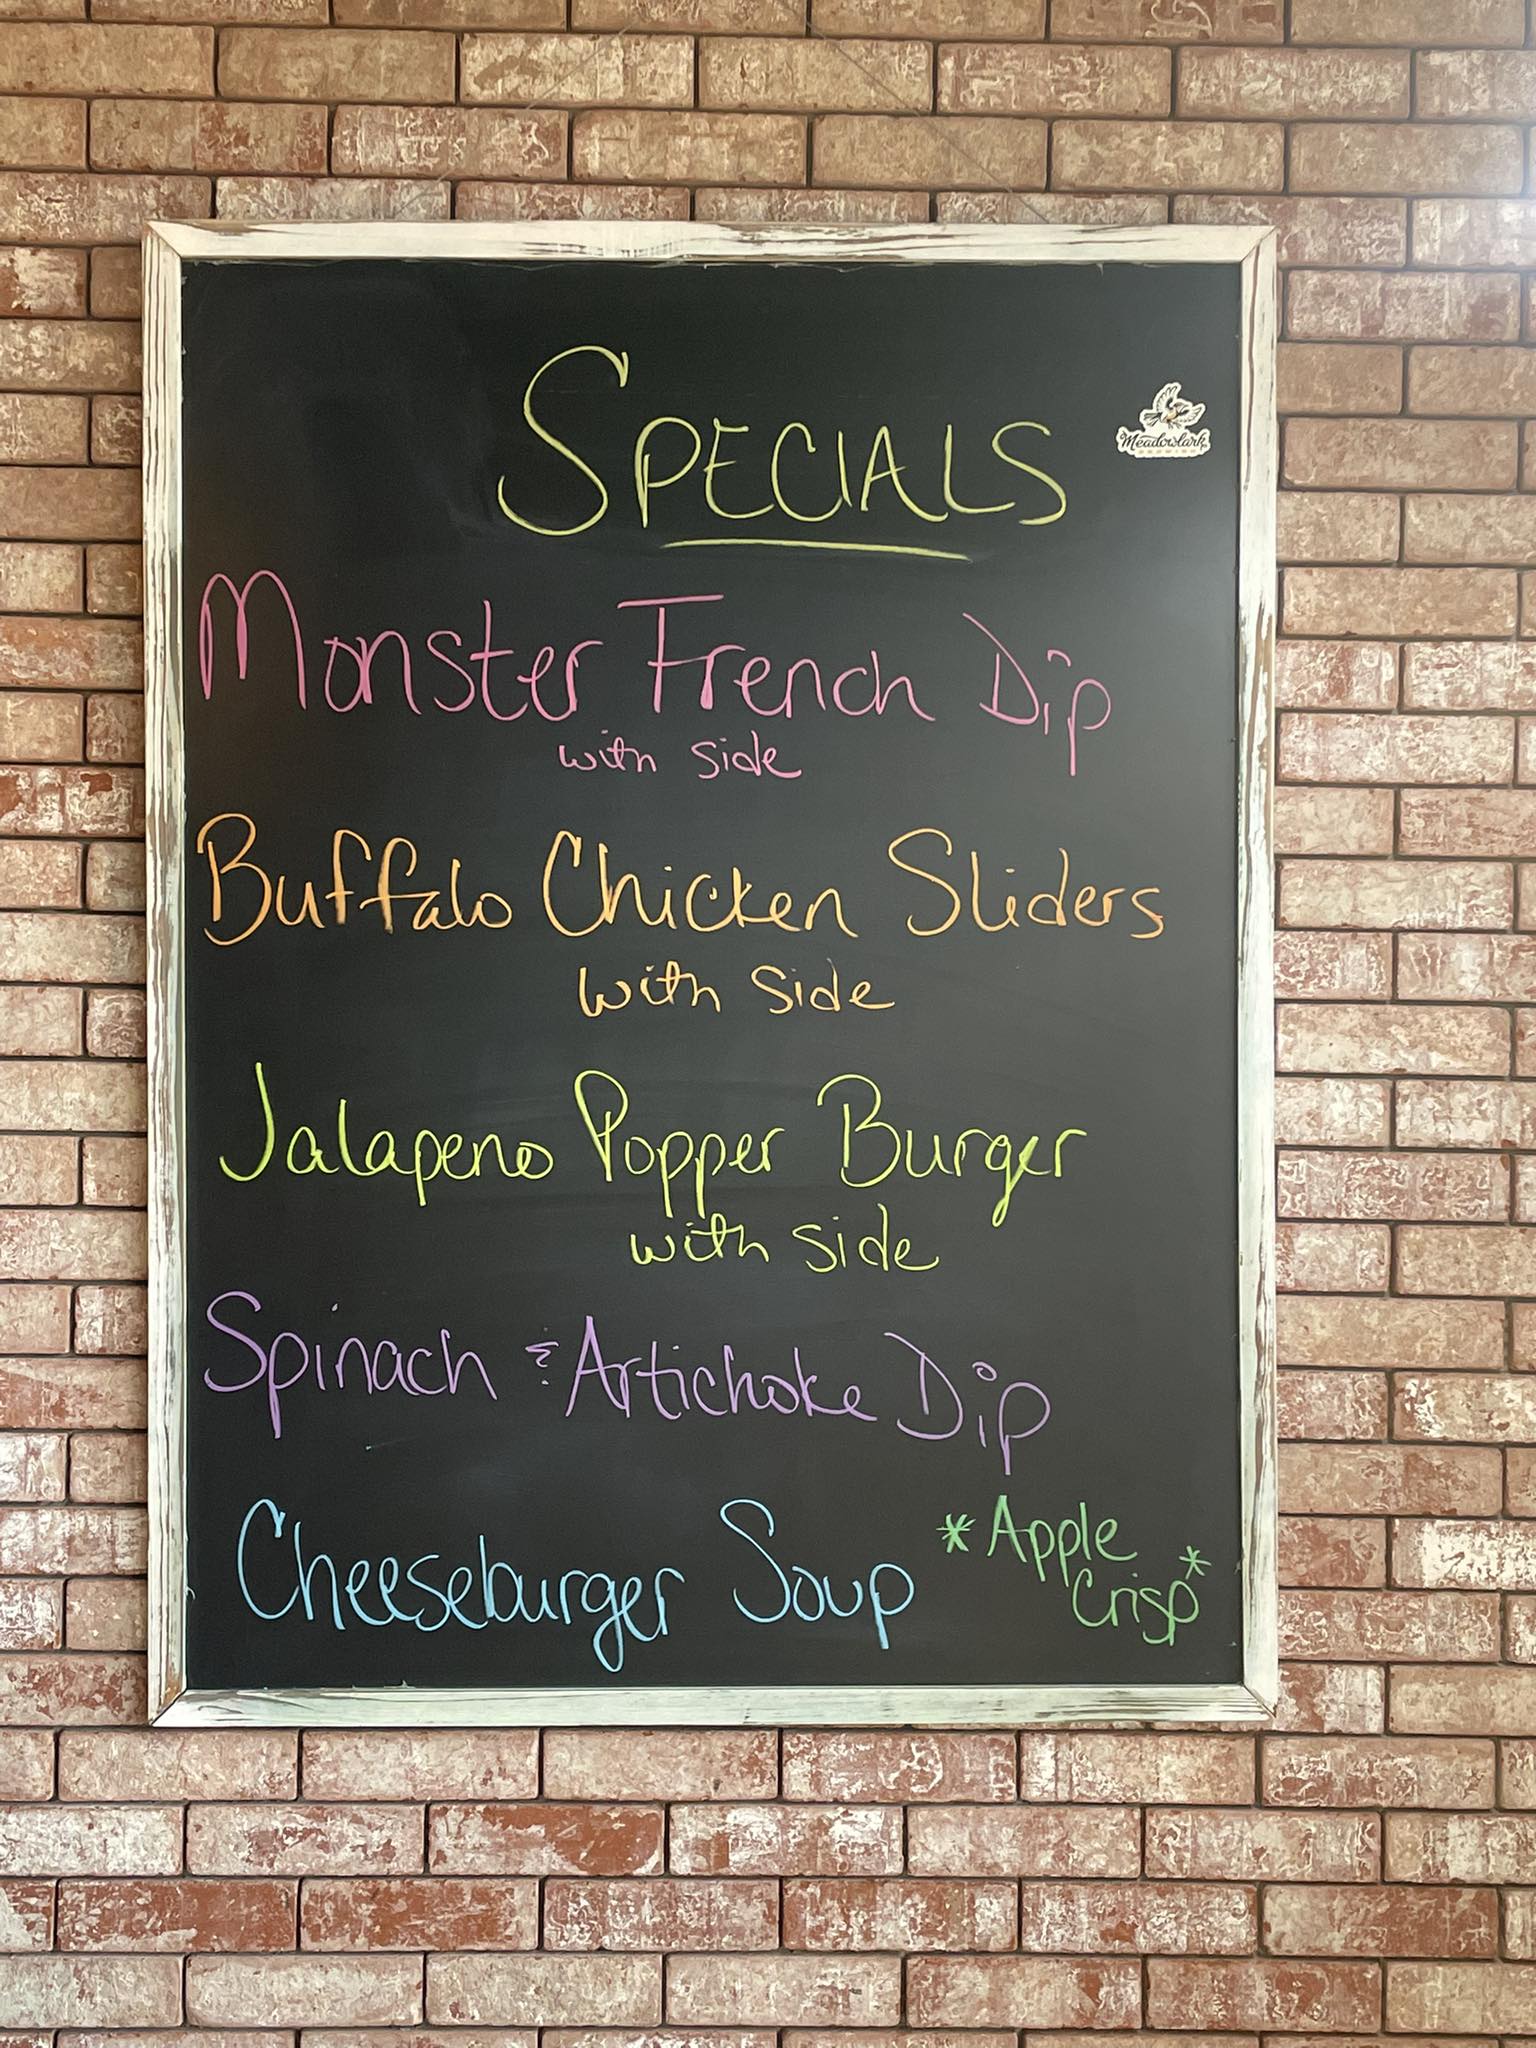 SPECIALS
Meadowlark
Monster French Dip
with side
Buffalo Chicken Sliders
with side
Jalapeno Popper Burger
with side
Spinach & Artichoke Dip
Cheeseburger Soup
*Apple
Crisp*